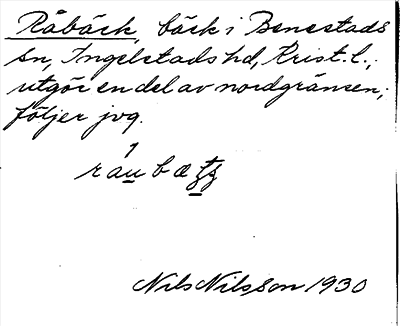 Råbäck, bäck i Benestads
sn, Ingelstads hd, Krist. l.,
utgör en del av nordgränsen;
följer jvg.
Nils Nilsson 1930